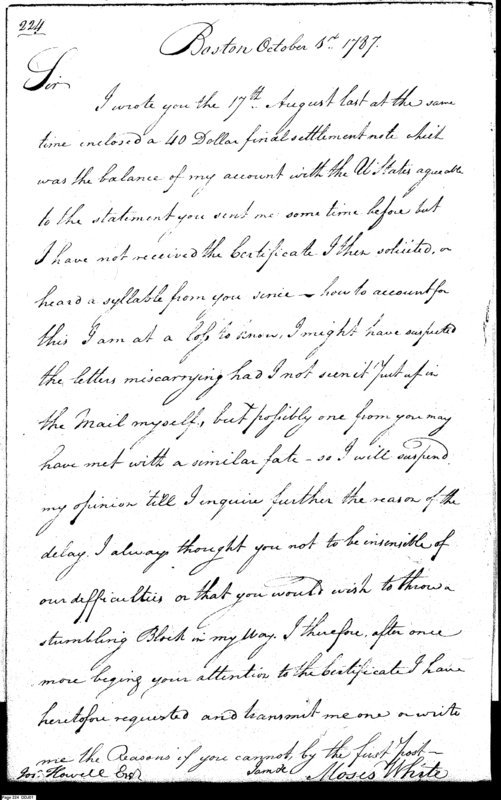 224
Boston October 8th 1787.
Sir
I wrote you the 17th August last at the same
time enclosed a 40 Dollar final settlement note which
was the balance of my account with the U States agreeable
to the statement you sent me some time before but
I have not received the Certificate I then solicited, or
heard a syllable from you since – how to account for
this I am at a loss to know, I might have suspected
the letters miscarrying had I not seen it Put up in
the Mail myself, but possibly one from you may
have met with a similar fate – so I will suspend
my opinion till I inquire further the reason of the
delay. I always thought you not to be insensible of
our difficulties or that you would wish to throw a
stumbling Block in my Way. I therefore, after once
more beging your attention to the Certificate I have
heretofore requested and transmit me one or write
me the Reasons if you cannot, by the first Post –
Jos. Howell Esqr
I am &c
Moses White
Page 224